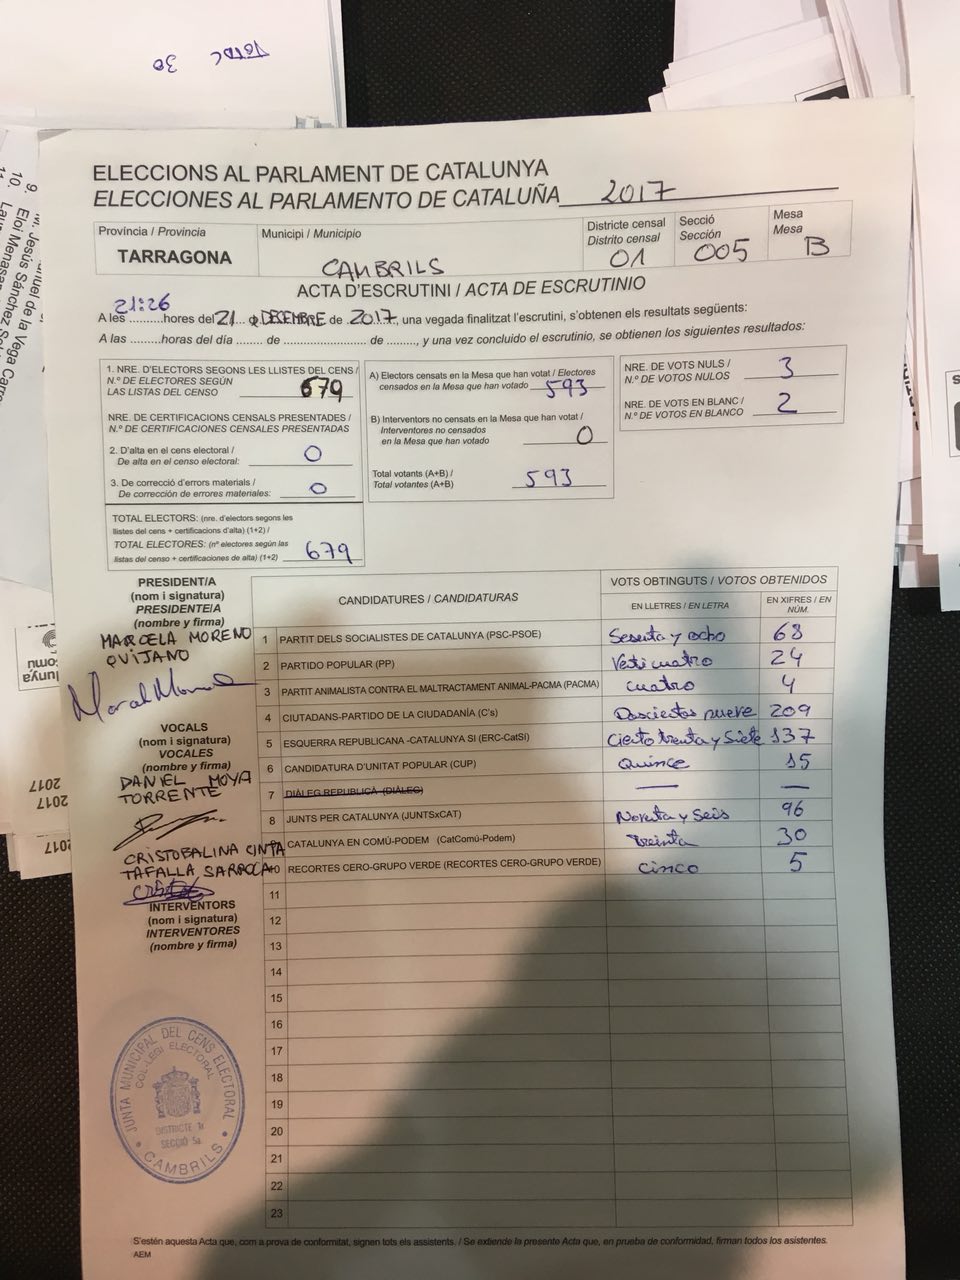 TOTAL 30
ELECCIONS AL PARLAMENT DE CATALUNYA
ELECCIONES AL PARLAMENTO DE CATALUÑA 2017
Província / Provincia
TARRAGONA
Municipi / Municipio
CAMBRILS
Districte censal
Distrito censal
01
Secció
Sección
005
Mesa
Mesa
B
ACTA D'ESCRUTINI / ACTA DE ESCRUTINIO
21:26
A les ..........hores del 21 de DECEMBRE de 2017, una vegada finalitzat l'escrutini, s'obtenen els resultats següents:
A las .........horas del día ........ de .................... de ........, y una vez concluido el escrutinio, se obtienen los siguientes resultados:
1. NRE. D'ELECTORS SEGONS LES LLISTES DEL CENS /
N.º DE ELECTORES SEGÚN
LAS LISTAS DEL CENSO 679
NRE. DE CERTIFICACIONS CENSALS PRESENTADES /
N.º DE CERTIFICACIONES CENSALES PRESENTADAS
2. D'alta en el cens electoral /
De alta en el censo electoral: 0
3. De correcció d'errors materials /
De corrección de errores materiales: 0
TOTAL ELECTORS: (nre. d'electors segons les
llistes del cens + certificacions d'alta) (1+2) /
TOTAL ELECTORES: (nº electores según las
listas del censo + certificaciones de alta) (1+2) 679
A) Electors censats en la Mesa que han votat / Electores
censados en la Mesa que han votado 593
B) Interventors no censats en la Mesa que han votat /
Interventores no censados
en la Mesa que han votado 0
Total votants (A+B) /
Total votantes (A+B) 593
NRE. DE VOTS NULS /
N.º DE VOTOS NULOS 3
NRE. DE VOTS EN BLANC /
N.º DE VOTOS EN BLANCO 2
PRESIDENT/A
(nom i signatura)
PRESIDENTE/A
(nombre y firma)
MARCELA MORENO
QUIJANO
VOCALS
(nom i signatura)
VOCALES
(nombre y firma)
DANIEL MOYA
TORRENTE
CRISTOBALINA CINTA
TAFALLA SARROCA
INTERVENTORS
(nom i signatura)
INTERVENTORES
(nombre y firma)
CANDIDATURES / CANDIDATURAS
VOTS OBTINGUTS / VOTOS OBTENIDOS
EN LLETRES / EN LETRA
EN XIFRES / EN NÚM.
1 PARTIT DELS SOCIALISTES DE CATALUNYA (PSC-PSOE) Sesenta y ocho 68
2 PARTIDO POPULAR (PP) Venticuatro 24
3 PARTIT ANIMALISTA CONTRA EL MALTRACTAMENT ANIMAL-PACMA (PACMA) cuatro 4
4 CIUTADANS-PARTIDO DE LA CIUDADANÍA (C's) Doscientos nueve 209
5 ESQUERRA REPUBLICANA -CATALUNYA SI (ERC-CatSí) Ciento trenta y Siete 137
6 CANDIDATURA D'UNITAT POPULAR (CUP) Quince 15
7 DIÀLEG REPUBLICÀ (DIÀLEG) — —
8 JUNTS PER CATALUNYA (JUNTSxCAT) Noventa y Seis 96
CATALUNYA EN COMÚ-PODEM (CatComú-Podem) treinta 30
10 RECORTES CERO-GRUPO VERDE (RECORTES CERO-GRUPO VERDE) cinco 5
11
12
13
14
15
16
17
18
19
20
21
22
23
JUNTA MUNICIPAL DEL CENS ELECTORAL
COL·LEGI ELECTORAL
DISTRICTE 1r
SECCIÓ 5a
CAMBRILS
S'estén aquesta Acta que, com a prova de conformitat, signen tots els assistents. / Se extiende la presente Acta que, en prueba de conformidad, firman todos los asistentes.
AEM
2017
2017
2017